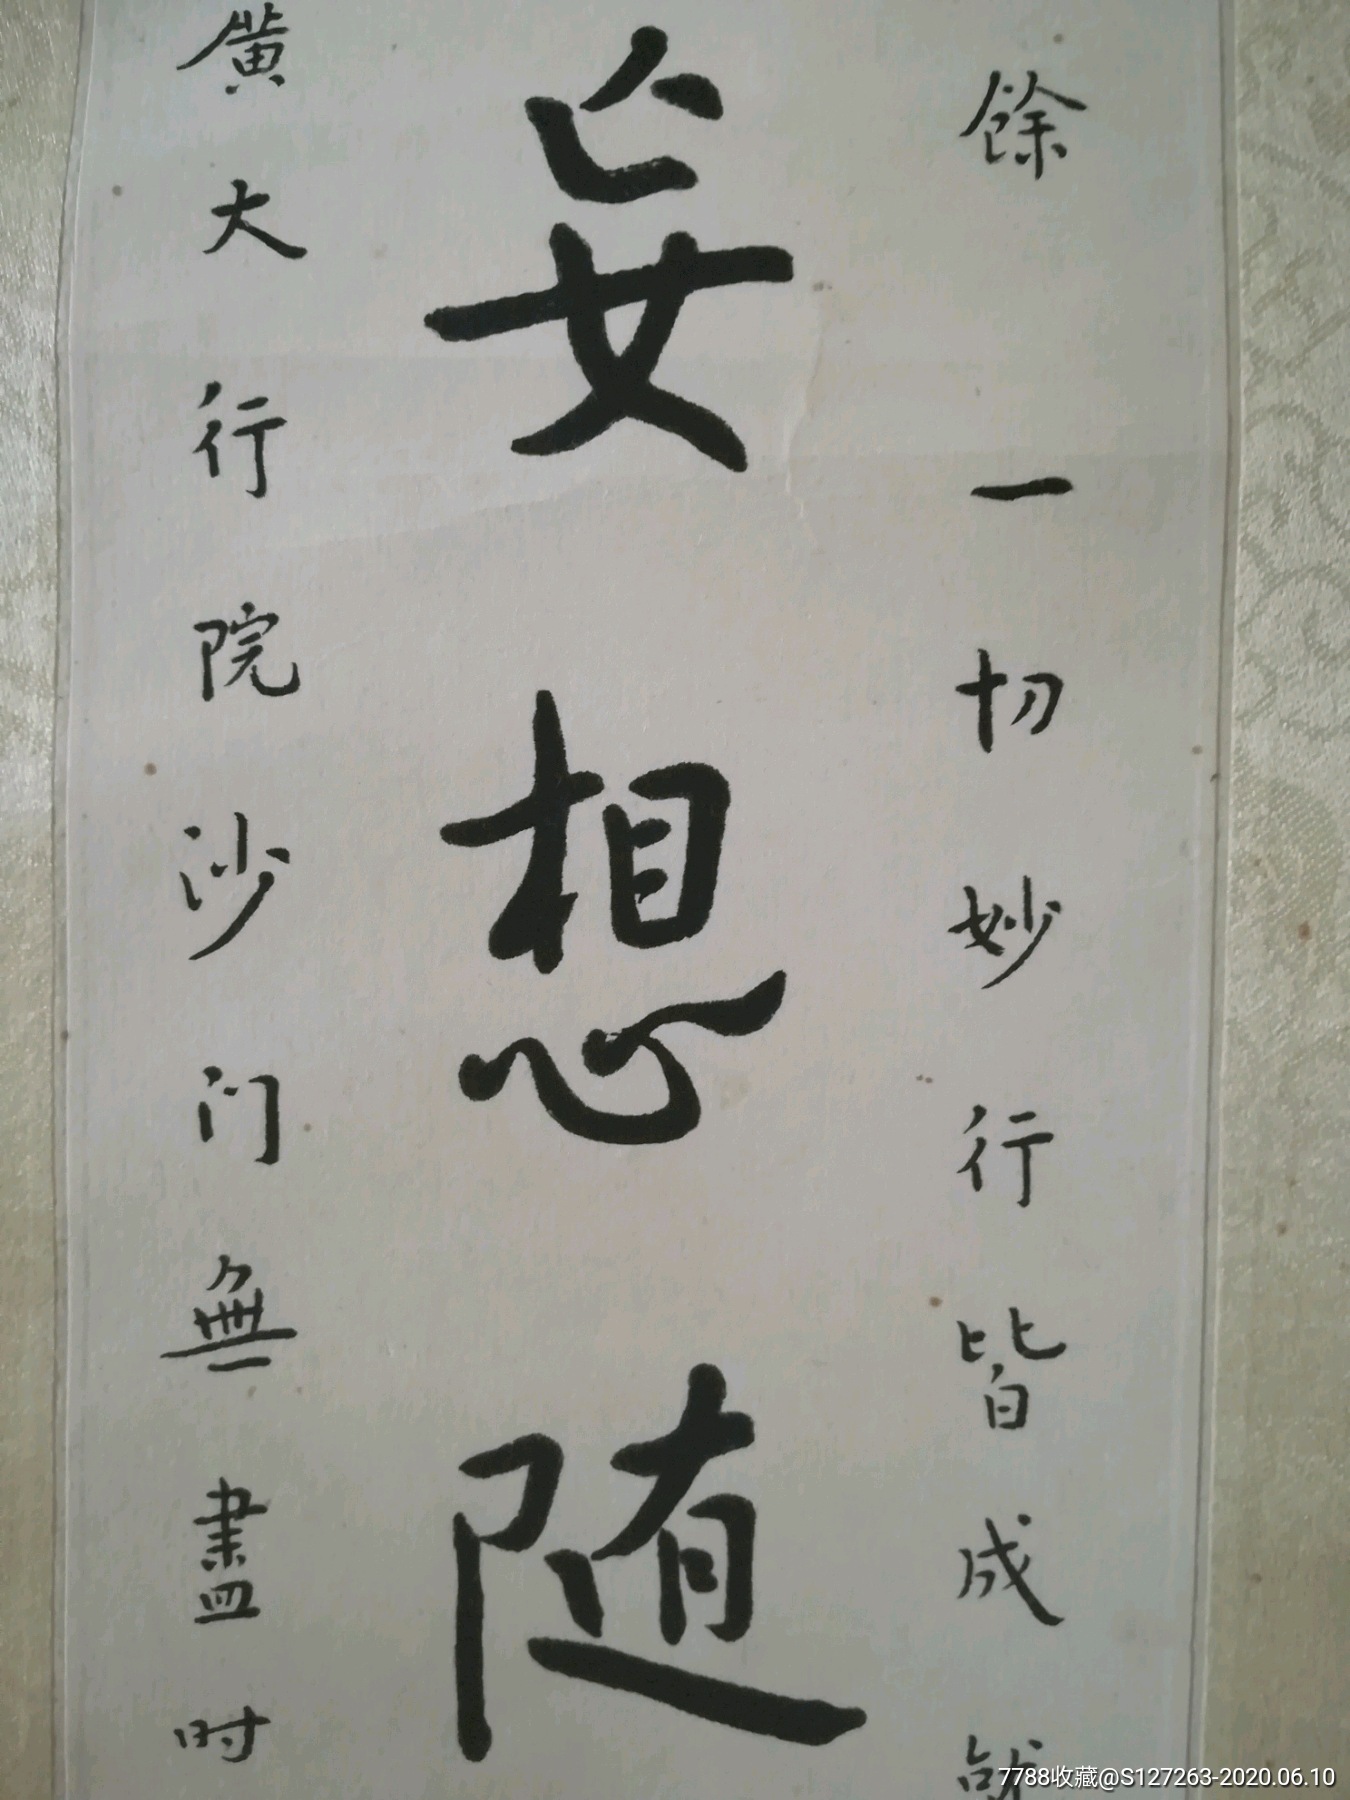 餘一切妙行皆成就
妄想随
廣大行院沙门無盡时
7788收藏@S127263-2020.06.10